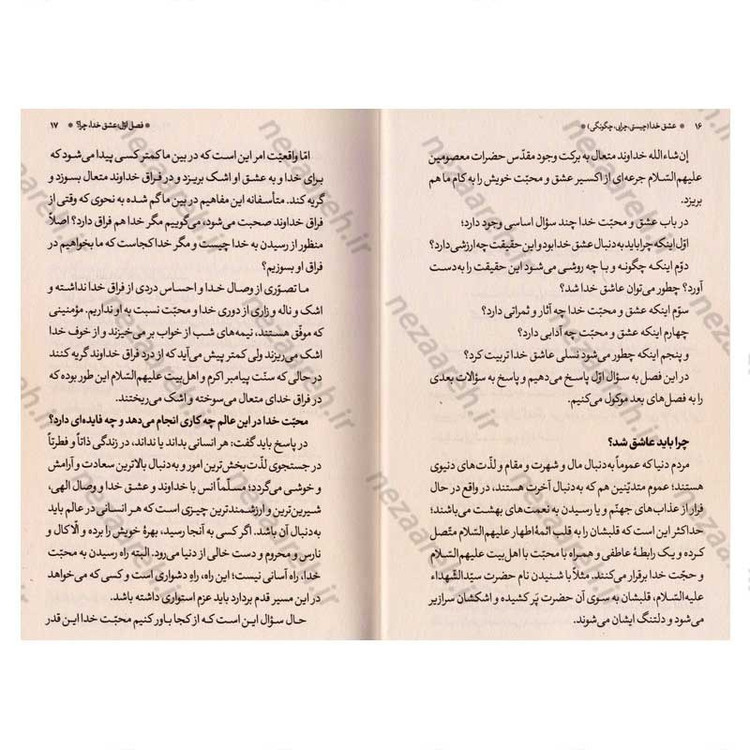 ۱۶ * عشق خدا (چیستی، چرایی، چگونگی) *
إن شاءالله خداوند متعال به برکت وجود مقدّس حضرات معصومین
علیهم‌السّلام جرعه‌ای از اکسیر عشق و محبّت خویش را به کام ما هم
بریزد.
در باب عشق و محبّت خدا چند سؤال اساسی وجود دارد؛
اوّل اینکه چرا باید به دنبال عشق خدا بود و این حقیقت چه ارزشی دارد؟
دوّم اینکه چگونه و با چه روشی می‌شود این حقیقت را به‌دست
آورد؟ چطور می‌توان عاشق خدا شد؟
سوّم اینکه عشق و محبّت خدا چه آثار و ثمراتی دارد؟
چهارم اینکه عشق و محبّت چه آدابی دارد؟
و پنجم اینکه چطور می‌شود نسلی عاشق خدا تربیت کرد؟
در این فصل به سؤال اوّل پاسخ می‌دهیم و پاسخ به سؤالات بعدی
را به فصل‌های بعد موکول می‌کنیم.
چرا باید عاشق شد؟
مردم دنیا که عموماً به‌دنبال مال و شهرت و مقام و لذّت‌های دنیوی
هستند؛ عموم متدیّنین هم که به‌دنبال آخرت هستند، در واقع در حال
فرار از عذاب‌های جهنّم و یا رسیدن به نعمت‌های بهشت می‌باشند؛
حداکثر این است که قلبشان را به قلب ائمّهٔ اطهار علیهم‌السّلام متّصل
کرده و یک رابطهٔ عاطفی و همراه با محبّت با اهل‌بیت علیهم‌السّلام
و حجّت خدا برقرار می‌کنند. مثلاً با شنیدن نام حضرت سیّدالشّهداء
علیه‌السّلام، قلبشان به سوی آن حضرت پَر کشیده و اشکشان سرازیر
می‌شود و دلتنگ ایشان می‌شوند.
* فصل اوّل: عشق خدا، چرا؟ * ۱۷
امّا واقعیّت امر این است که در بین ما کمتر کسی پیدا می‌شود که
برای خدا و به عشق او اشک بریزد و در فراق خداوند متعال بسوزد و
گریه کند. متأسفانه این مفاهیم در بین ما گم شده به نحوی که وقتی از
فراق خداوند صحبت می‌شود، می‌گوییم مگر خدا هم فراق دارد؟ اصلاً
منظور از رسیدن به خدا چیست و مگر خدا کجاست که ما بخواهیم در
فراق او بسوزیم؟
ما تصوّری از وصال خدا و احساس دردی از فراق خدا نداشته و
اشک و ناله و زاری از دوری خدا و محبّت نسبت به او نداریم. مؤمنینی
که موفّق هستند، نیمه‌های شب از خواب بر می‌خیزند و از خوف خدا
اشک می‌ریزند ولی کمتر پیش می‌آید که از درد فراق خداوند گریه کنند
در حالی که سنّت پیامبر اکرم و اهل‌بیت علیهم‌السّلام این طور بوده که
در فراق خدای متعال می‌سوخته و اشک می‌ریختند.
محبّت خدا در این عالم چه کاری انجام می‌دهد و چه فایده‌ای دارد؟
در پاسخ باید گفت: هر انسانی بداند یا نداند، در زندگی ذاتاً و فطرتاً
در جستجوی لذّت‌بخش‌ترین امور و به‌دنبال بالاترین سعادت و آرامش
و خوشی می‌گردد؛ مسلّماً انس با خداوند و عشق خدا و وصال الهی،
شیرین‌ترین و ارزشمندترین چیزی است که هر انسانی در عالم باید
به‌دنبال آن باشد. اگر کسی به آنجا رسید، بهرهٔ خویش را برده و الّا کال و
نارس و محروم و دست خالی از دنیا می‌رود. البته راه رسیدن به محبّت
خدا، راه آسانی نیست؛ این راه، راهِ دشواری است و کسی که می‌خواهد
در این مسیر قدم بردارد باید عزم استواری داشته باشد.
حال سؤال این است که از کجا باور کنیم محبّت خدا این قدر
nezaareh.ir